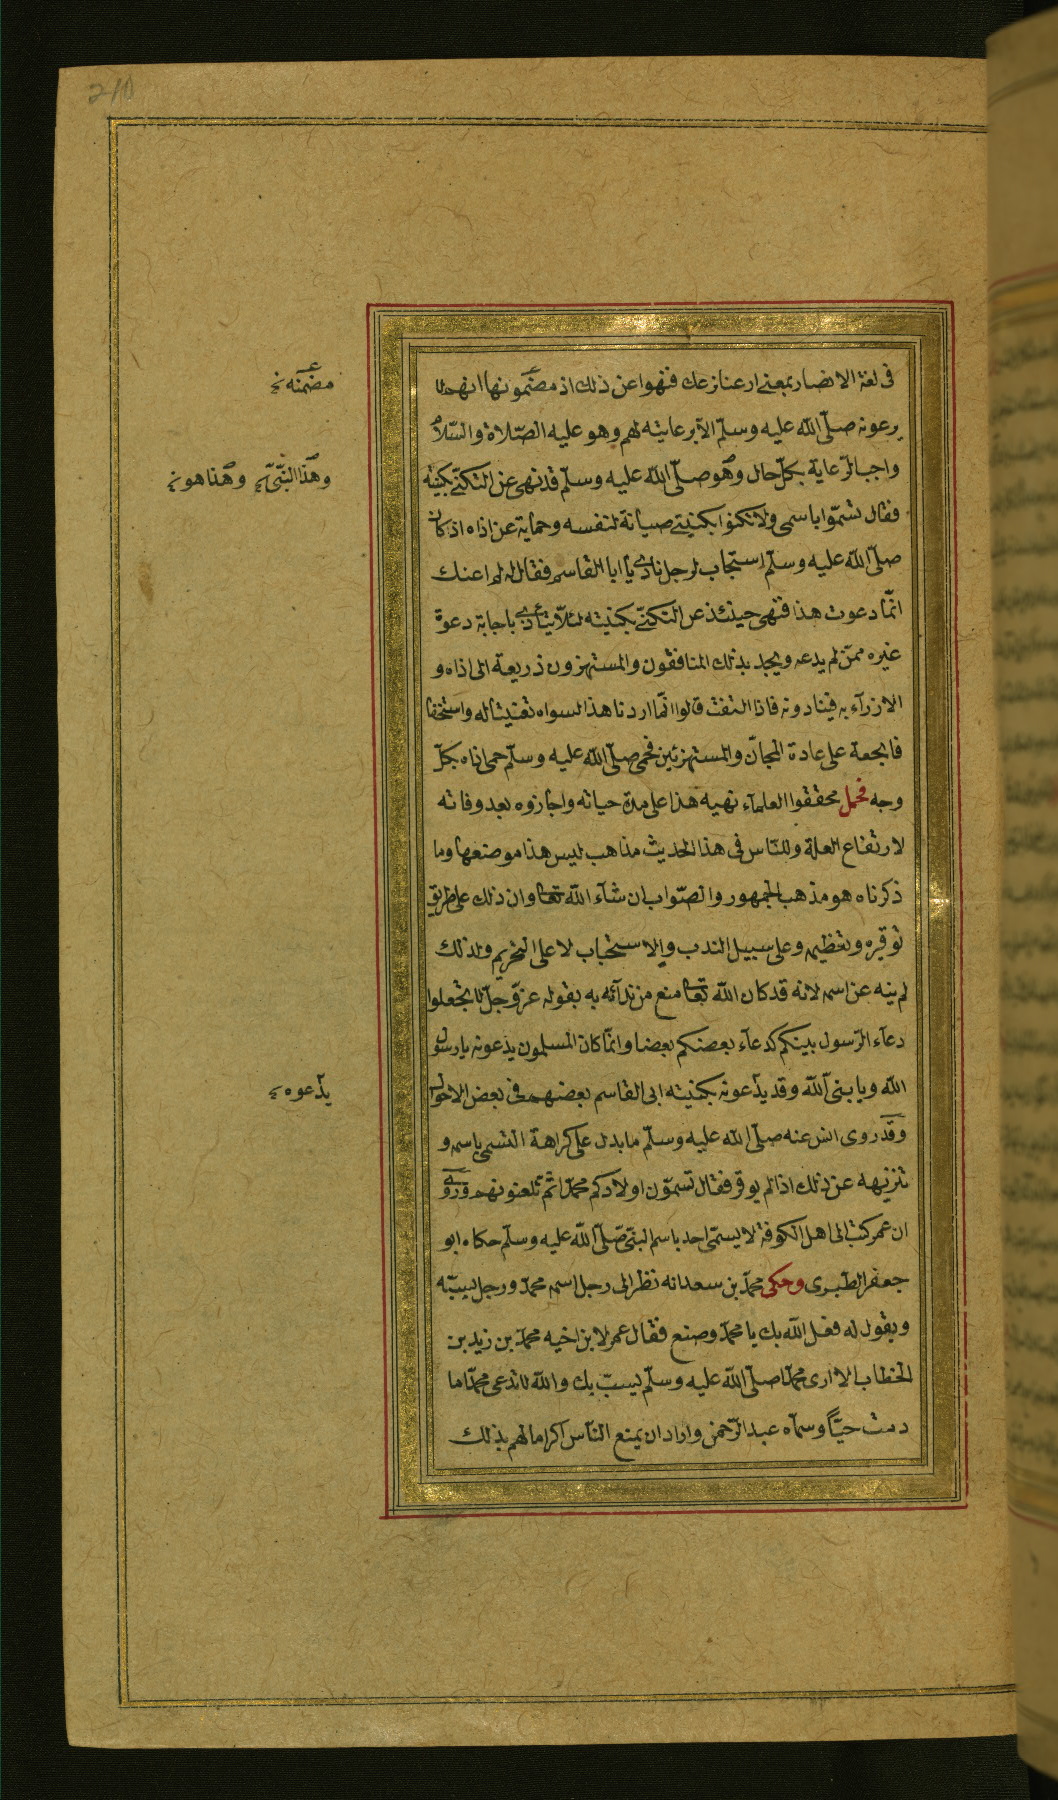 فى لغة الانصار بمعنى ارعنا نرعك فنهوا عن ذلك اذ مضمونها انهم لا
يرعونه صلّى الله عليه وسلّم الا برعايته لهم وهو عليه الصّلاة والسّلام
واجب الرّعاية بكلّ حال وهو صلّى الله عليه وسلّم قد نهى عن التكنّى بكنيته
فقال تسمّوا باسمى ولا تكنوا بكنيتى صيانة لنفسه وحماية عن اذاه اذ كان
صلّى الله عليه وسلّم استجاب لرجل نادى يا ابا القاسم فقال له لم اعنك
انّما دعوت هذا فنهى حينئذ عن التكنّى بكنيته لئلّا يتأذى باجابة دعوة
غيره ممّن لم يدعه ويجد بذلك المنافقون والمستهزون ذريعة الى اذاه و
الازرآء به فينادونه فاذا التفت قالوا انّما اردنا هذا لسواه تعنيتا له واستخفا
فا بحقه على عادة المجانّ والمستهزئين فحمى صلّى الله عليه وسلّم حمى اذاه بكلّ
وجه فحمل محققوا العلمآء نهيه هذا على مدّة حياته واجازوه بعد وفاته
لارتفاع العلة وللنّاس فى هذا الحديث مذاهب ليس هذا موضعها وما
ذكرناه هو مذهب الجمهور والصّواب ان شآء الله تعا وان ذلك على طريق
توقيره وتعظيمه وعلى سبيل الندب والاستحباب لا على التحريم ولذلك
لم ينه عن اسمه لانه قد كان الله تعا منع من ندآئه به بقوله عزّ وجلّ لا تجعلوا
دعآء الرّسول بينكم كدعآء بعضكم بعضا وانّما كان المسلمون يدعونه يا رسول
الله ويا نبىّ الله وقد يدّعونه بكنيته ابى القاسم بعضهم فى بعض الاحوال
وقد روى انس عنه صلّى الله عليه وسلّم ما يدل على كراهة التسمى باسمه و
تنزيهه عن ذلك اذا لم يوقر فقال تسمّون اولادكم محمّدا ثم تلعنونهم وروى
ان عمر كتب الى اهل الكوفة لا يسمّى احد باسم النبىّ صلّى الله عليه وسلّم حكاه ابو
جعفر الطّبرى وحكى محمّد بن سعد انه نظر الى رجل اسمه محمّد ورجل يسبّه
ويقول له فعل الله بك يا محمّد وصنع فقال عمر لابن اخيه محمّد بن زيد بن
الخطاب الا ارى محمّدا صلّى الله عليه وسلّم يسبّ بك والله لا تدعى محمّدا ما
دمت حيّا وسمّاه عبد الرّحمن واراد ان يمنع النّاس اكراما لهم بذلك
مضمنه
وهذا النبىّ وهذا هو
يدّعوه
210